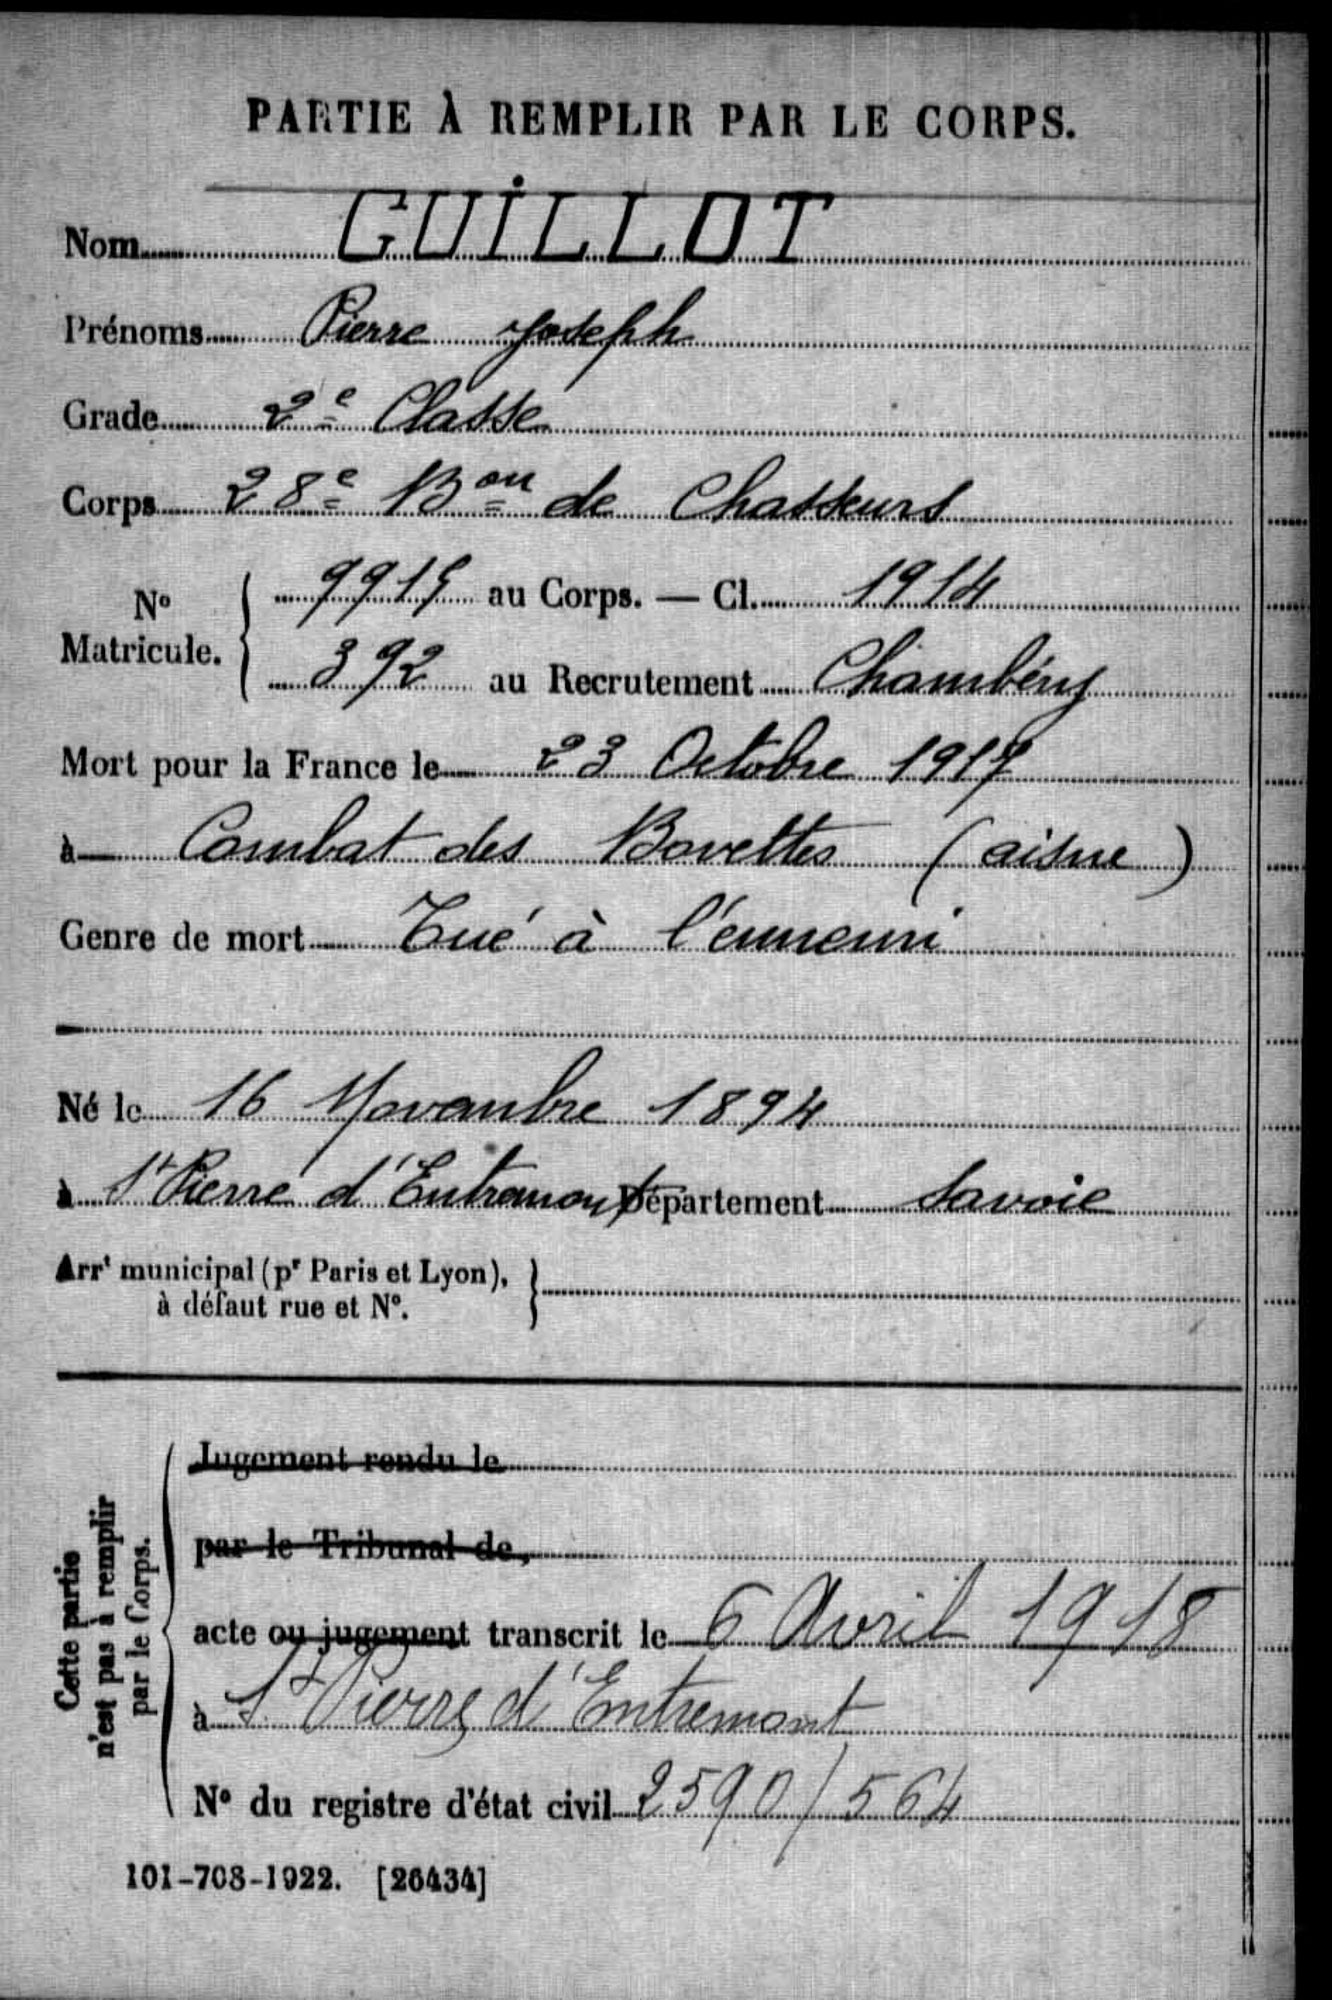 PARTIE À REMPLIR PAR LE CORPS.
Nom GUILLOT
Prénoms Pierre Joseph
Grade 2e Classe
Corps 28e Bon de Chasseurs
No Matricule. 9915 au Corps. — Cl. 1914
392 au Recrutement Chambéry
Mort pour la France le 23 Octobre 1917
à Combat des Bovettes (aisne)
Genre de mort Tué à l'ennemi
Né le 16 Novembre 1894
à St Pierre d'Entremont Département Savoie
Arrt municipal (pr Paris et Lyon),
à défaut rue et No.
Cette partie
n'est pas à remplir
par le Corps.
Jugement rendu le
par le Tribunal de,
acte ou jugement transcrit le 6 Avril 1918
à St Pierre d'Entremont
No du registre d'état civil 2590/564
101-708-1922. [26434]